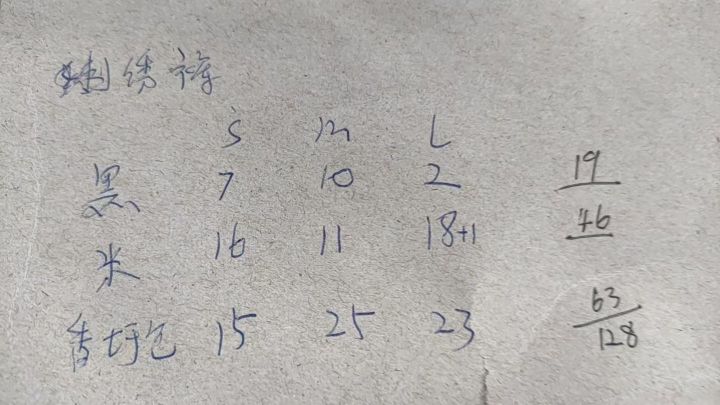 刺绣裤
S m L
黑 7 10 2 19
米 16 11 18+1 46
香 色 15 25 23 63
128